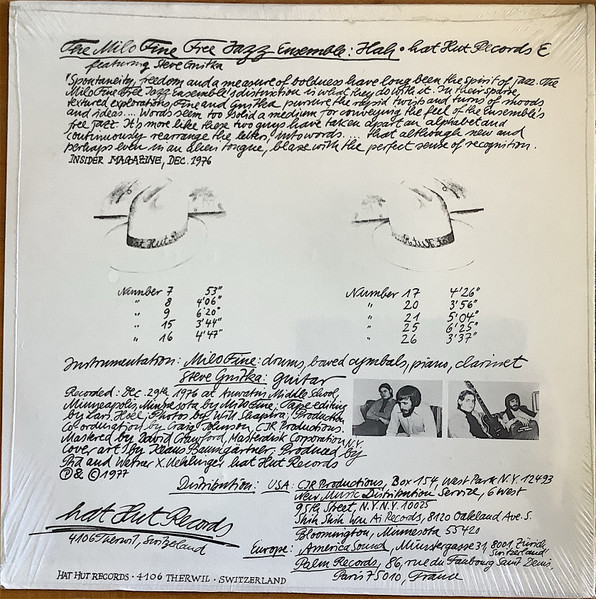 The Milo Fine Free Jazz Ensemble: Hah • hat Hut Records E
featuring Steve Gnitka
"Spontaneity, freedom and a measure of boldness have long been the spirit of jazz. The
Milo Fine Free Jazz Ensemble's distinction is what they do with it. In their sparse,
textured explorations, Fine and Gnitka pursue the rapid twists and turns of moods
and ideas.... Words seem too solid a medium for conveying the feel of the ensemble's
free jazz. It's more like these two guys have taken apart an alphabet and
continuously rearrange the letters into words.... that although new and
perhaps even in an alien tongue, blaze with the perfect sense of recognition.
INSIDER MAGAZINE, DEC. 1976
hat Hut
hat Hut
Number 7 53"
" 8 4'06"
" 9 6'20"
" 15 3'44"
" 16 4'47"
Number 17 4'26"
" 20 3'56"
" 21 5'04"
" 25 6'25"
" 26 3'37"
Instrumentation: Milo Fine: drums, bowed cymbals, piano, clarinet
Steve Gnitka: guitar
Recorded: Dec. 29th, 1976 at Anwatin Middle School,
Minneapolis, Minnesota by Milo Fine, Tape editing
by Lars Hoel, Photos by Will Shapira, Production
Co-ordination by Craig Johnson, CJR Productions.
Mastered by David Crawford, Masterdisk Corporation, N.Y.
Cover art by Klaus Baumgärtner, Produced by
Pia and Werner X. Uehlinger hat Hut Records
℗ & © 1977
Distribution: USA: CJR Productions, Box 154, West Park N.Y. 12493
New Music Distribution Service, 6 West
95th Street, N.Y. N.Y. 10025
Shih Shih Wu Ai Records, 8120 Oakland Ave. S.
Bloomington, Minnesota 55421
hat Hut Records
4106 Therwil, Switzerland
Europe: America Sound, Münstergasse 31, 8001 Zürich,
Switzerland
Palm Records, 86, rue du Faubourg Saint Denis,
Paris 75010, France
HAT HUT RECORDS • 4106 THERWIL • SWITZERLAND